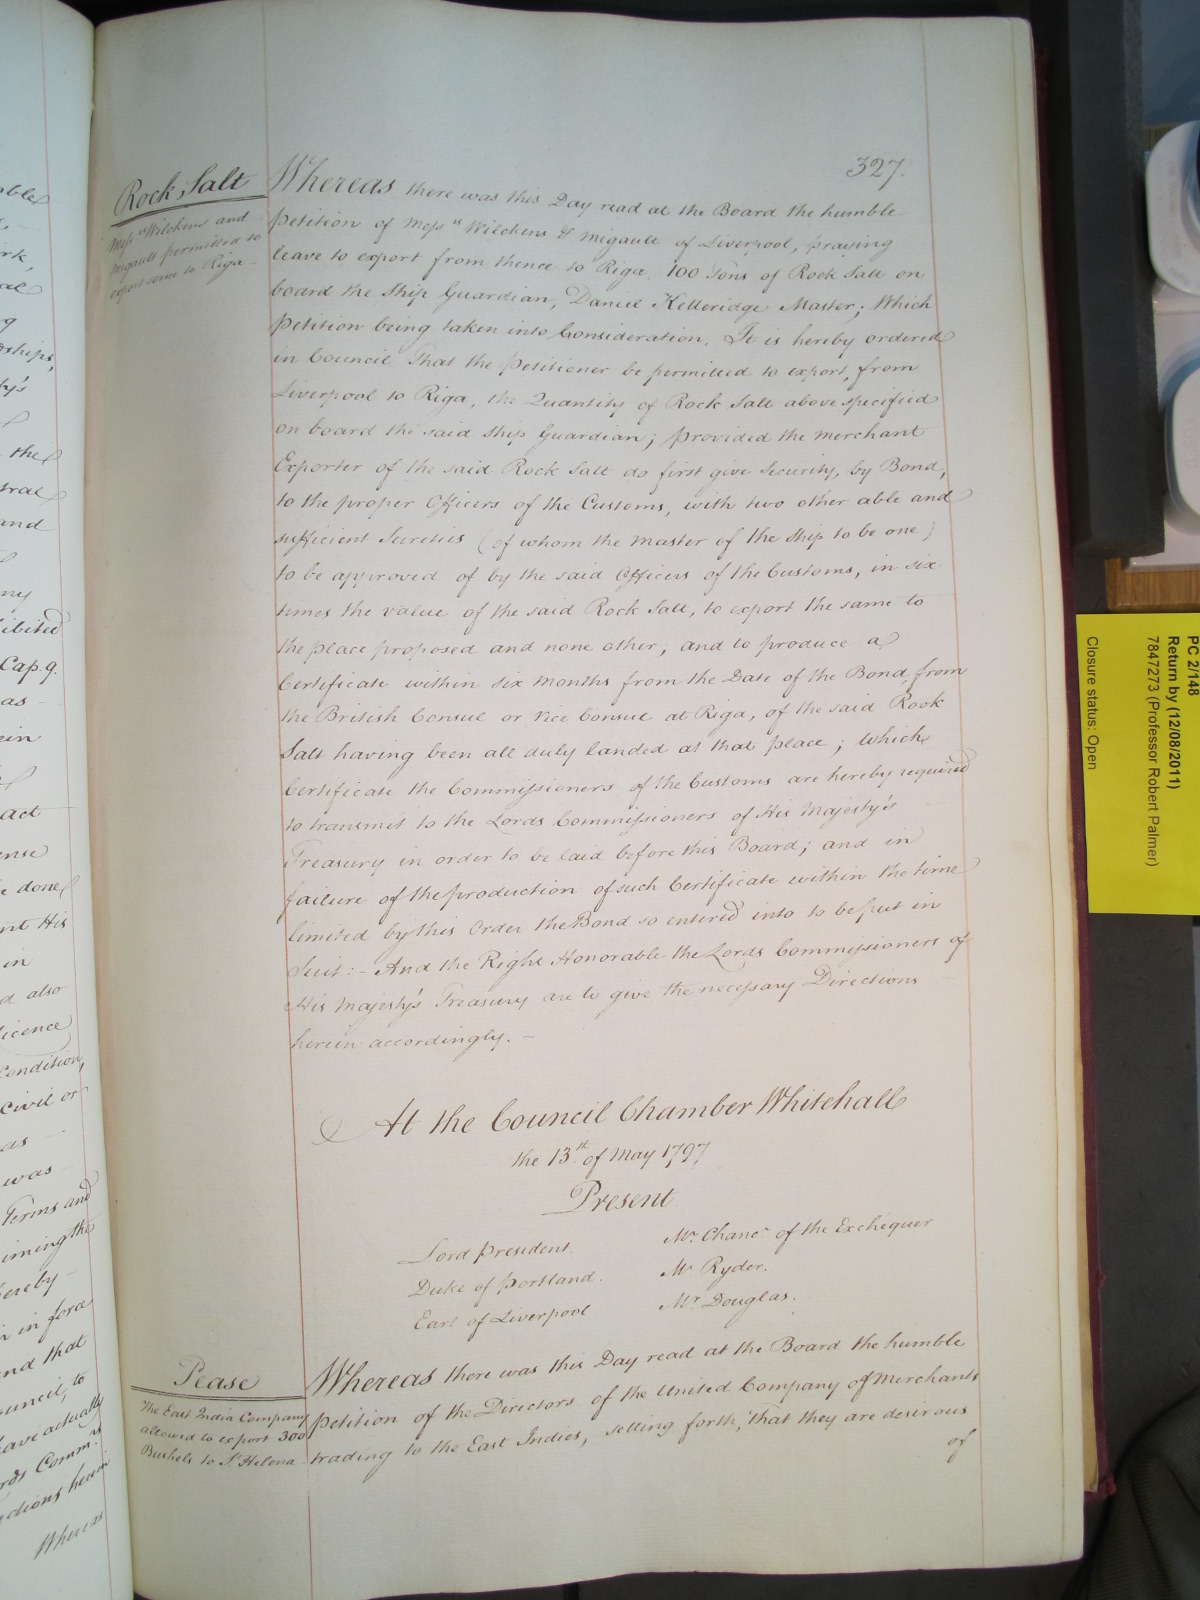 327.
Rock Salt
Mess.rs Wilckens and
Migault permitted to
export some to Riga
Whereas there was this Day read at the Board the humble
Petition of Mess.rs Wilckens & Migault of Liverpool, praying
leave to export from thence to Riga, 100 Tons of Rock Salt on
board the Ship Guardian, Daniel Kelleridge Master; Which
Petition being taken into Consideration, It is hereby ordered
in Council That the Petitioner be permitted to export, from
Liverpool to Riga, the Quantity of Rock Salt above specified
on board the said Ship Guardian; provided the Merchant
Exporter of the said Rock Salt do first give Security, by Bond,
to the proper Officers of the Customs, with two other able and
sufficient Sureties (of whom the Master of the Ship to be one)
to be approved of by the said Officers of the Customs, in six
times the value of the said Rock Salt, to export the same to
the place proposed and none other; and to produce a
Certificate within six Months from the Date of the Bond, from
the British Consul or Vice Consul at Riga, of the said Rock
Salt having been all duly landed at that place; Which
Certificate the Commissioners of the Customs are hereby required
to transmit to the Lords Commissioners of His Majesty's
Treasury in order to be laid before this Board; and in
failure of the production of such Certificate within the time
limited by this Order the Bond so entered into to be put in
Suit:- And the Right Honorable the Lords Commissioners of
His Majesty's Treasury are to give the necessary Directions
herein accordingly. -
At the Council Chamber Whitehall
the 13th of May 1797
Present
Lord President. Mr. Chancr of the Exchequer
Duke of Portland. Mr Ryder.
Earl of Liverpool Mr Douglas.
Pease
The East India Company
allowed to export 300
Bushels to St Helena
Whereas there was this Day read at the Board the humble
Petition of the Directors of the United Company of Merchants
trading to the East Indies, setting forth, That they are desirous
of
ships,
the
and
ibited
Cap 9.
as
act
done
in
also
Condition,
Civil or
as
was
Terms and
and that
Whereas
PC 2/148
Return by (12/08/2011)
7847273 (Professor Robert Palmer)
Closure status: Open